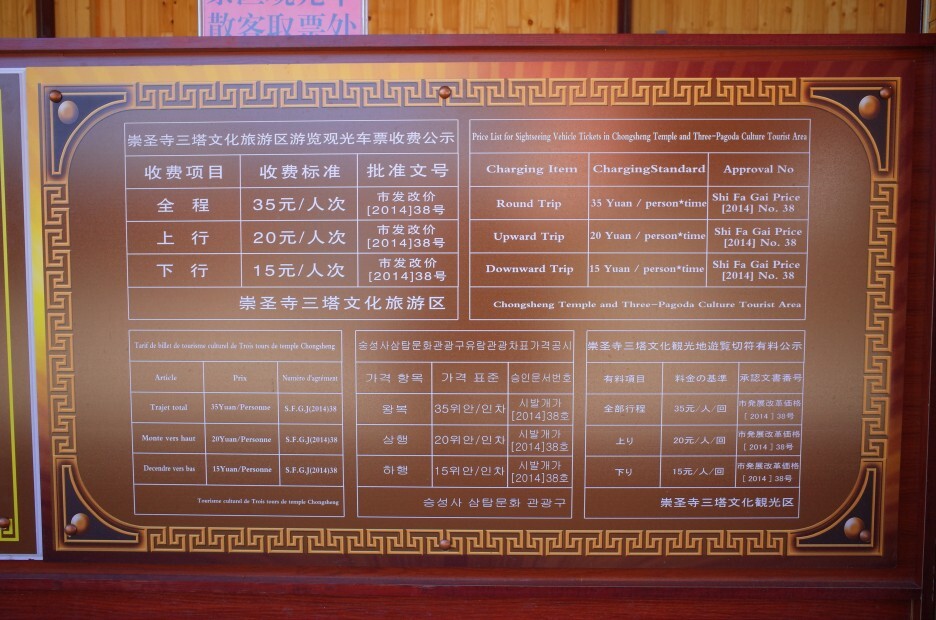 散客取票处
崇圣寺三塔文化旅游区游览观光车票收费公示
收费项目 收费标准 批准文号
全 程 35元/人次 市发改价[2014]38号
上 行 20元/人次 市发改价[2014]38号
下 行 15元/人次 市发改价[2014]38号
崇圣寺三塔文化旅游区
Price List for Sightseeing Vehicle Tickets in Chongsheng Temple and Three-Pagoda Culture Tourist Area
Charging Item ChargingStandard Approval No
Round Trip 35 Yuan / person*time Shi Fa Gai Price [2014] No. 38
Upward Trip 20 Yuan / person*time Shi Fa Gai Price [2014] No. 38
Downward Trip 15 Yuan / person*time Shi Fa Gai Price [2014] No. 38
Chongsheng Temple and Three-Pagoda Culture Tourist Area
Tarif de billet de tourisme culturel de Trois tours de temple Chongsheng
Article Prix Numéro d'agrément
Trajet total 35Yuan/Personne S.F.G.J(2014)38
Monte vers haut 20Yuan/Personne S.F.G.J(2014)38
Decendre vers bas 15Yuan/Personne S.F.G.J(2014)38
Tourisme culturel de Trois tours de temple Chongsheng
숭성사삼탑문화관광구유람관광차표가격공시
가격 항목 가격 표준 승인문서번호
왕복 35위안/인차 시발개가 [2014]38호
상행 20위안/인차 시발개가 [2014]38호
하행 15위안/인차 시발개가 [2014]38호
숭성사 삼탑문화 관광구
崇圣寺三塔文化観光地遊覧切符有料公示
有料項目 料金の基準 承認文書番号
全部行程 35元/人/回 市発展改革価格 [2014]38号
上り 20元/人/回 市発展改革価格 [2014]38号
下り 15元/人/回 市発展改革価格 [2014]38号
崇圣寺三塔文化観光区